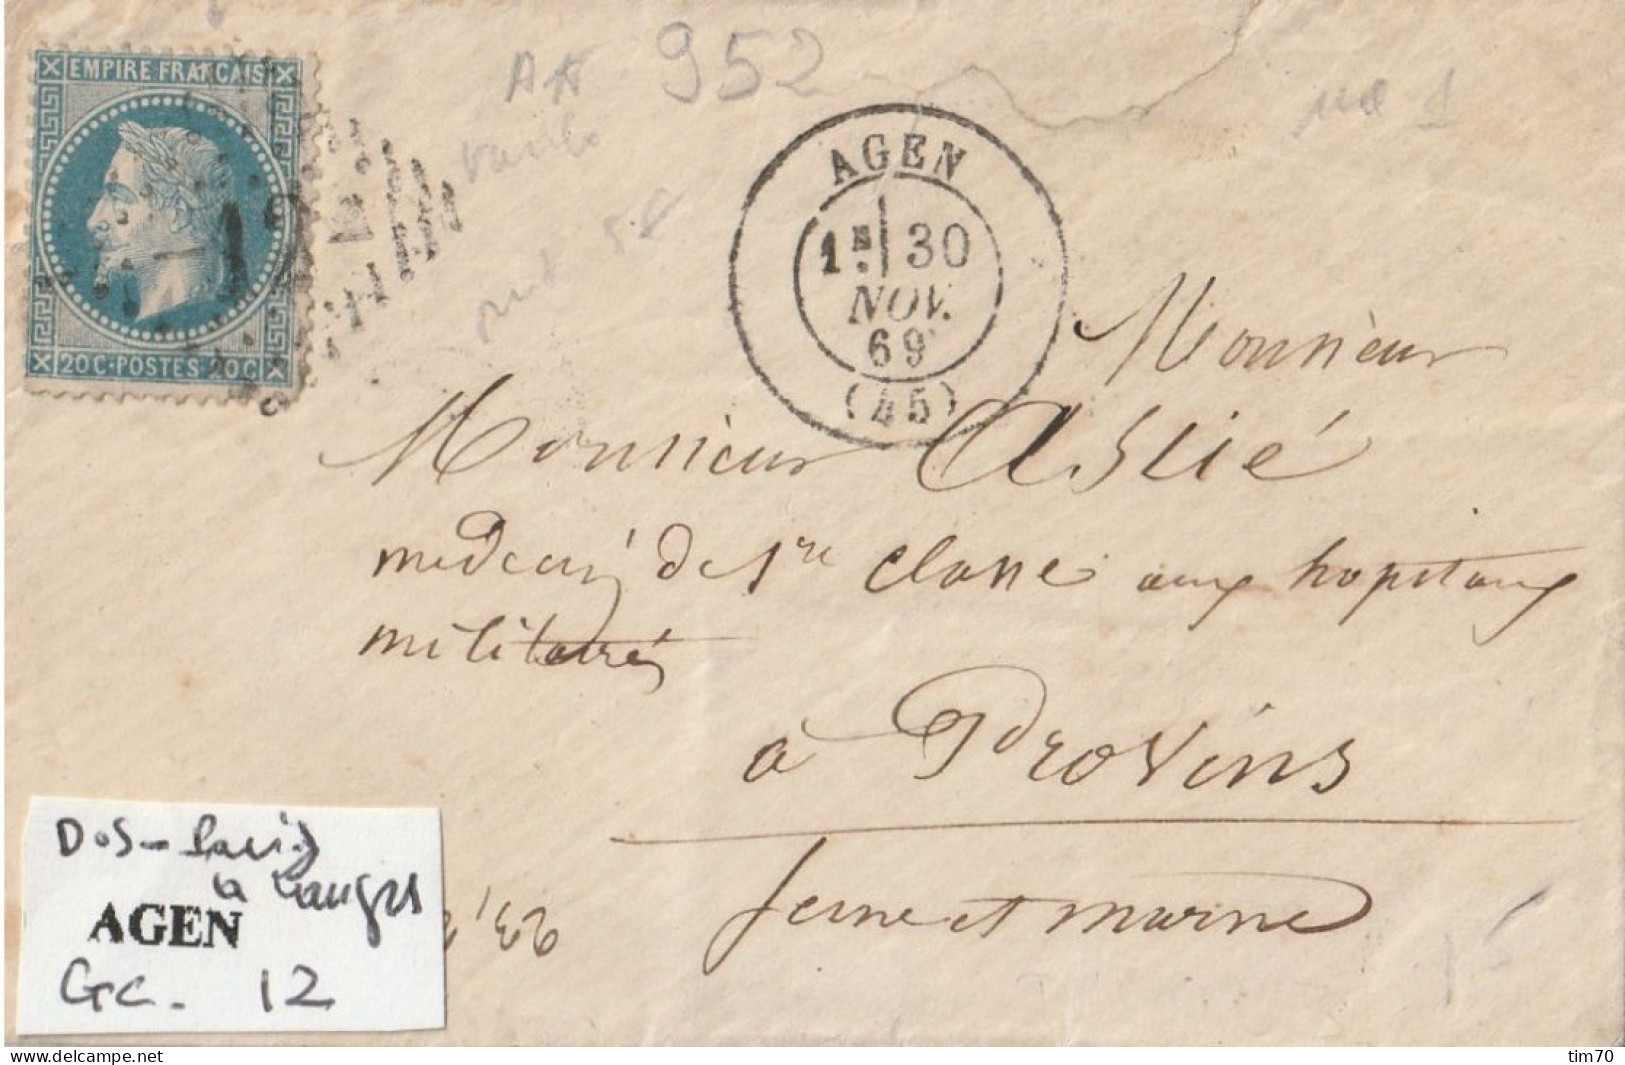 EMPIRE FRANCAIS
20C·POSTES·20C
952
AGEN
1E 30
NOV.
69
(45)
Monsieur
Monsieur Astié
medecin de 1re classe aux hopitaux
militaires
à Provins
Seine et marne
Dos - Paris
a Langres
AGEN
GC. 12
www.delcampe.net
tim70